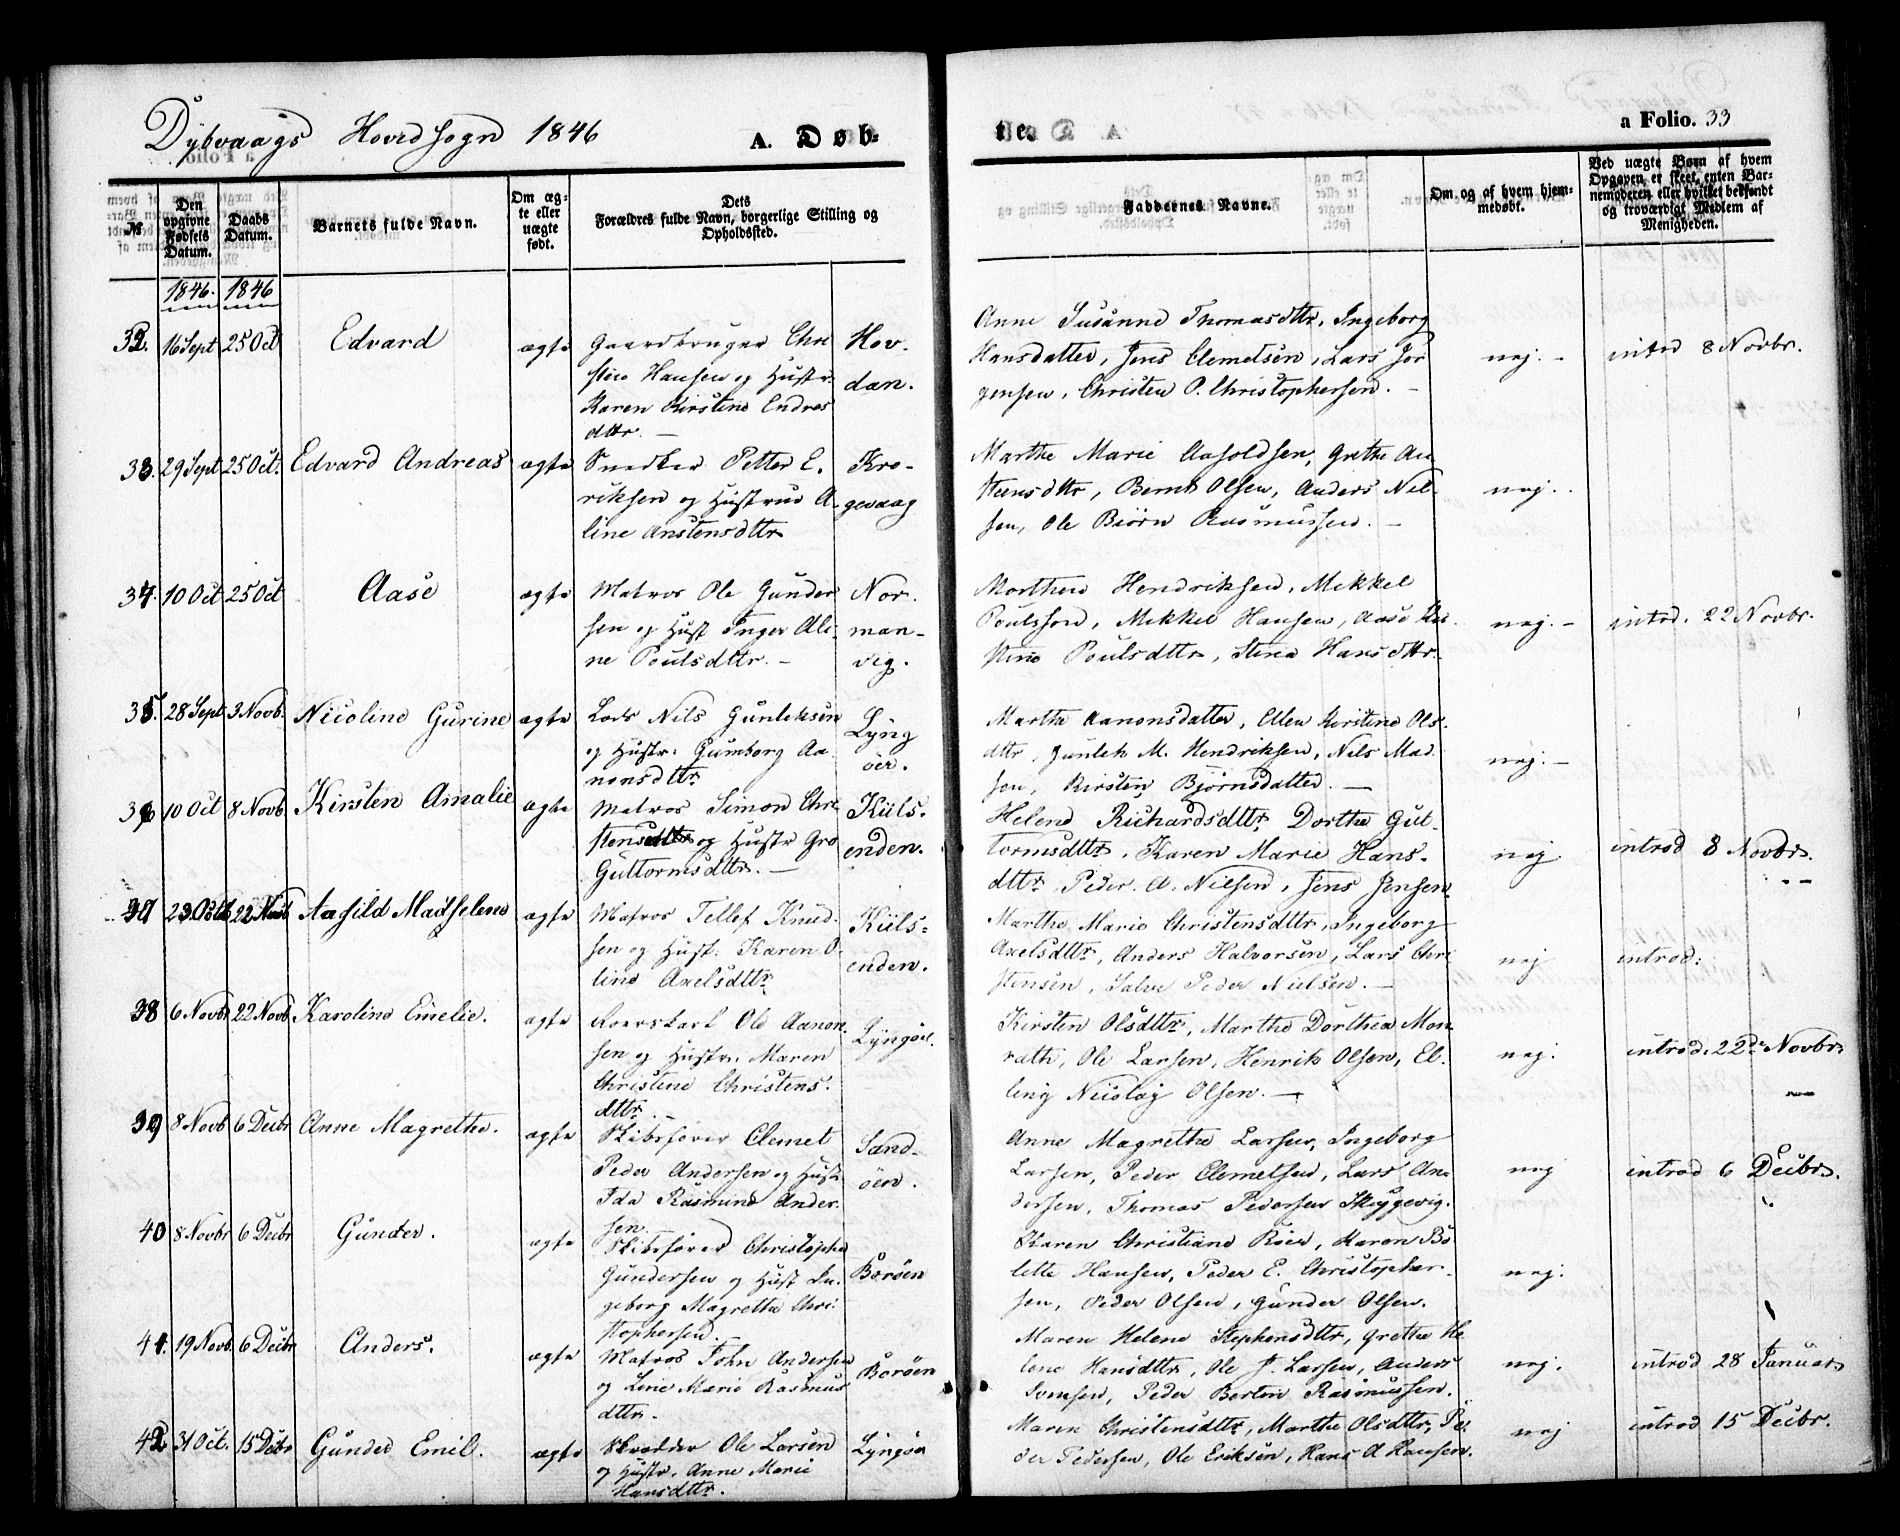 Dybvaags Hovedsogn 1846
A. Døb-
te.
a Folio. 33
№
Den opgivne Fødsels Datum.
Daabs Datum.
Barnets fulde Navn.
Om ægte eller uægte født.
Dets Forældres fulde Navn, borgerlige Stilling og Opholdssted.
Faddernes Navne.
Om og af hvem hjemmedøbt.
Ved uægte Børn af hvem Opgaven er skeet, enten Barnemoderen eller hvilket bekjendt og troværdigt Medlem af Menigheden.
1846. 1846
32. 16 Sept 25 Oct Edvard ægte
Gaardbruger Chri
sten Hansen og Hustr.
Karen Kirstine Endres
dttr. —
Hov-
dan.
Anne Susanne Thomasdttr, Ingeborg
Hansdatter, Jens Clemetsen, Lars Jør
gensen, Christen P. Christophersen. —
nej. —
introd 8 Novbr.
33. 29 Sept 25 Oct. Edvard Andreas ægte
Snedker Petter E.
riksen og Hustrue A-
line Anstensdttr
Kro-
gevaag
Marthe Marie Aasoldsen, Grethe An
steensdttr, Bernt Olsen, Anders Nil-
sen, Ole Biørn Rasmussen. —
nej.
34. 10 Oct 25 Oct Aase ægte
Matros Ole Gunder
sen og Hust Inger Ali-
ne Poulsdttr. —
Nor-
man-
vig.
Morthen Hendriksen, Mekkel
Poulsson, Mekkel Hansen, Aase Kir-
stine Poulsdttr, Stine Hansdttr.
nej. —
introd. 22 Novbr.
35. 28 Sept 3 Novb. Nicoline Gurine ægte
Lods Nils Gunleksen
og Hustr. Gumborg Aa-
nonsdttr
Lyng
öer.
Marthe Aanonsdatter, Ellen Kirstine Ols-
dttr, Gunlek M. Hendriksen, Nils Mad-
sen, Kirsten Bjørnsdatter. —
nej. —
36 10 Oct 8 Novb. Kirsten Amalie ægte
Matros Simon Chri
stens og Hustr Gro
Guttormsdttr. —
Kiils-
enden.
Helene Richardsdttr, Dorthe Gut-
tormsdttr, Karen Marie Hans-
dttr Peder A. Nilsen, Jens Jensen
nej
introd 8 Novbr.
37 23 Octb 22 Novb Aasild Madselene ægte
Matros Tellef Knud-
sen og Hust. Karen O-
line Axelsdttr
Kiils-
enden.
Marthe Marie Christensdttr, Ingeborg
Axelsdttr, Anders Halvorsen, Lars Chri
stensen, Salve Peder Nielsen. —
nej
introd:
38 6 Novbr 22 Novb Karoline Emelie. ægte
Roerskarl Ole Aanon-
sen og Hustr. Maren
Christine Christens-
dttr.
Lyngöer.
Kirsten Olsdttr, Marthe Dorthea Mon
rath, Ole Larsen, Henrik Olsen, El-
ling Nicolay Olsen. —
nej.
introd. 22de Novbr.
39 8 Novb 6 Decbr Anne Magrethe. ægte
Skibsfører Clemet
Peder Andersen og Hust
Ida Rasmine Ander-
sen.
Sand-
öen.
Anne Magrethe Larsen, Ingeborg
Larsen, Peder Clemetsen, Lars An-
dersen, Thomas Pedersen Skyggevig.
nej
introd 6 Decbr.
40 8 Novbr 6 Decbr Gunder. ægte
Skibsfører Christopher
Gundersen og Hust In-
geborg Magrethe Chri-
stophersen.
Boröen
Karen Christiane Roed, Karen Bo
lette Hansen, Peder E. Christopher-
sen, Peder Olsen, Gunder Olsen.
nej.
41. 19 Novb. 6 Decbr Anders. ægte
Matros John Andersen
og Line Marie Rasmus
dttr.
Boröen
Maren Helene Stephensdttr, Grethe He
lene Hansdttr, Ole J. Larsen, Anders
Svensen, Peder Berten Rasmussen.
nej.
introd 28 Januar
42 31 Oct. 15 Decbr Gunder Emil. ægte
Skrædder Ole Larsen
og Hustr. Anne Marie
Hansdttr.
Lyngøer
Maren Christensdttr, Marthe Olsdttr, Pe-
der Pedersen, Ole Eriksen, Hans A Hansen.
nej
introd 15 Decbr.